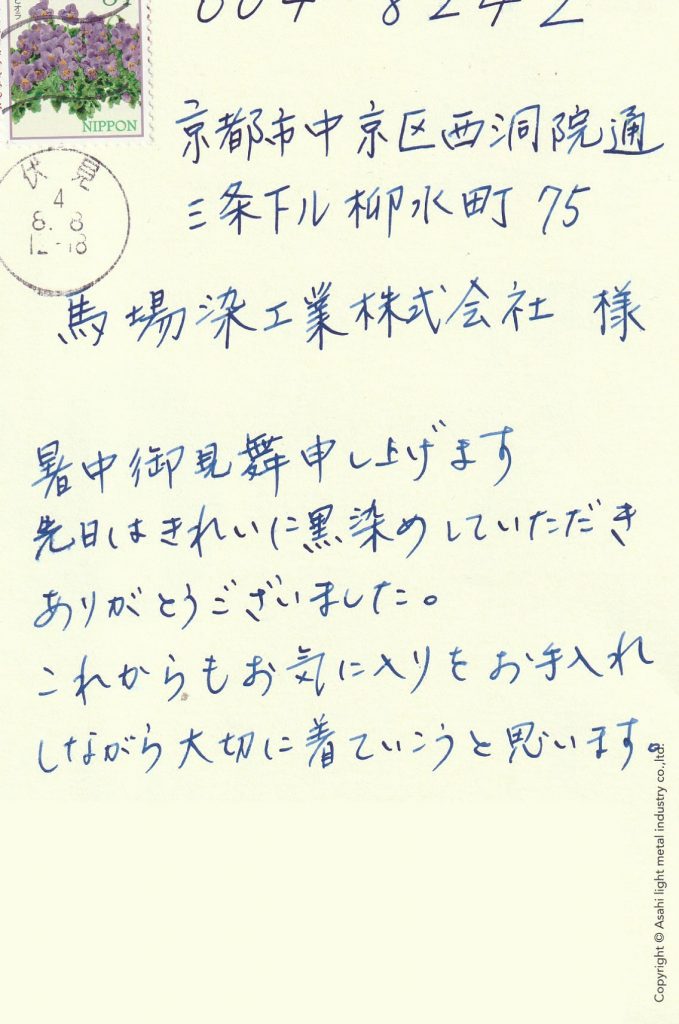 604 8242
NIPPON
京都市中京区西洞院通
三条下ル柳水町75
伏見
4
8.8
12-18
馬場染工業株式会社 様
暑中御見舞申し上げます
先日はきれいに黒染めしていただき
ありがとうございました。
これからもお気に入りをお手入れ
しながら大切に着ていこうと思います。
Copyright © Asahi light metal industry co.,ltd.